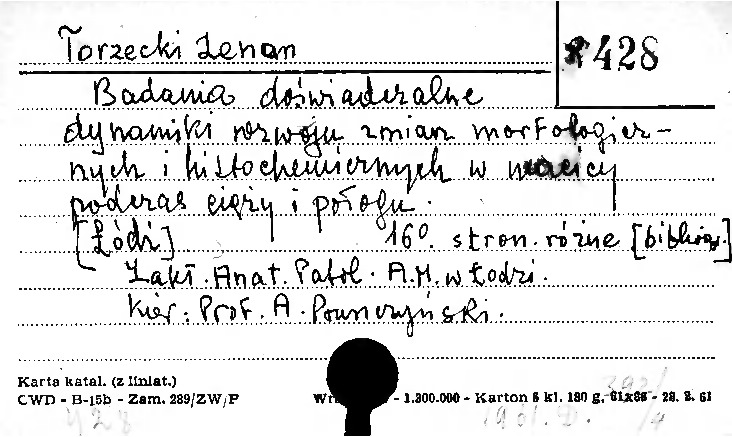 Torzecki Zenon
428
Badania doświadczalne
dynamiki rozwoju zmian morfologicz-
nych i histochemicznych w macicy
podczas ciąży i połogu.
[Łódź] 16°. stron. różne [bibliogr.]
Zakł. Anat. Patol. A.M. w Łodzi.
Kier: Prof. A. Pruszczyński.
Karta katal. (z liniat.)
CWD - B-15b - Zam. 289/ZW/P
- 1.300.000 - Karton 8 kl. 180 g.
428